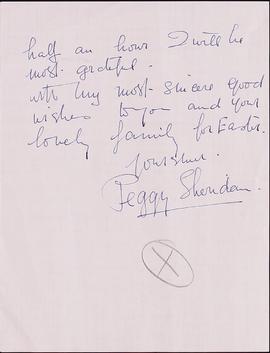 half an hour I will be
most grateful.
with my most sincere good
wishes to you and your
lovely family for Easter.
Peggy Sheridan
X